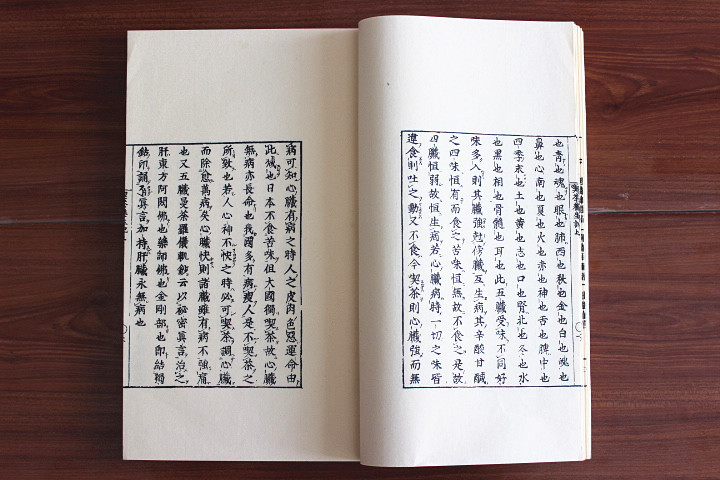 也青也魂也眼也肺西也秋也金也白也魄也
鼻也心南也夏也火也赤也神也舌也脾中也
四季末也土也黄也志也口也腎北也冬也水
也黒也相也骨髓也耳也此五臓受味不同好
味多入則其臓強尅傍臓互生病其辛酸甘鹹
之四味恒有而食之苦味恒無故不食之是故
四臓恒強心臓恒弱故恒生病若心臓病時一切之味皆
違食則吐之動又不食今喫茶則心臓強而無
病可知心臓有病之時人之皮肉色惡運命由
此減也日本不食苦味但大國獨喫茶故心臓
無病亦長命也我國多有病瘦人是不喫茶之
所致也若人心神不快之時必可喫茶調心臓
而除愈萬病矣心臓快則諸臓雖有病不強痛
也又五臓曼荼羅儀軌鈔云以秘密真言治之
肝東方阿閦佛也藥師佛也金剛部也即結獨
鈷印誦真言加持肝臓永無病也